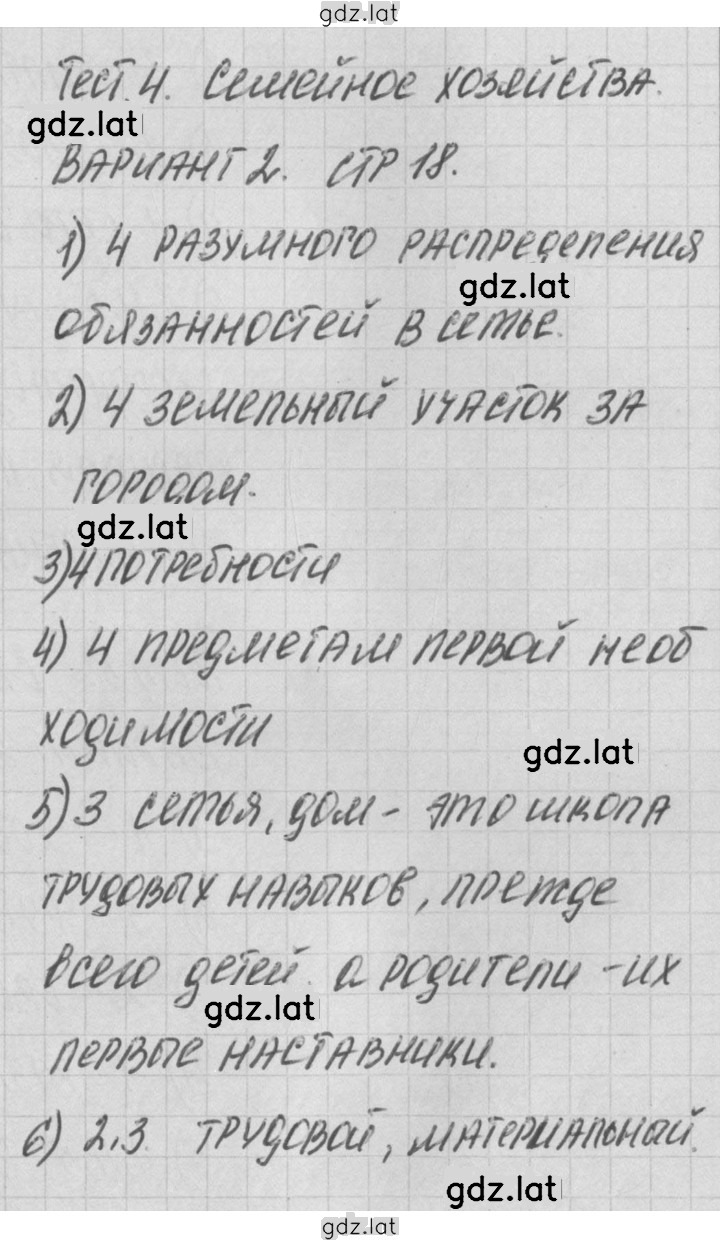 gdz.lat
Тест.4. Семейное хозяйства.
gdz.lat
ВАРИАНТ 2. СТР 18.
1) 4 РАЗУМНОГО РАСПРЕДЕЛЕНИЯ
gdz.lat
ОБЯЗАННОСТЕЙ В СЕМЬЕ.
2) 4 ЗЕМЕЛЬНЫЙ УЧАСТОК ЗА
ГОРОДОМ.
gdz.lat
3) 4 ПОТРЕБНОСТИ
4) 4 ПРЕДМЕТАМ ПЕРВОЙ НЕОБ
ХОДИМОСТИ
gdz.lat
5) 3 СЕМЬЯ, ДОМ - ЭТО ШКОЛА
ТРУДОВЫХ НАВЫКОВ, ПРЕЖДЕ
ВСЕГО ДЕТЕЙ. А РОДИТЕЛИ - ИХ
gdz.lat
ПЕРВЫЕ НАСТАВНИКИ.
6) 2,3. ТРУДОВОЙ, МАТЕРИАЛЬНЫЙ.
gdz.lat
gdz.lat